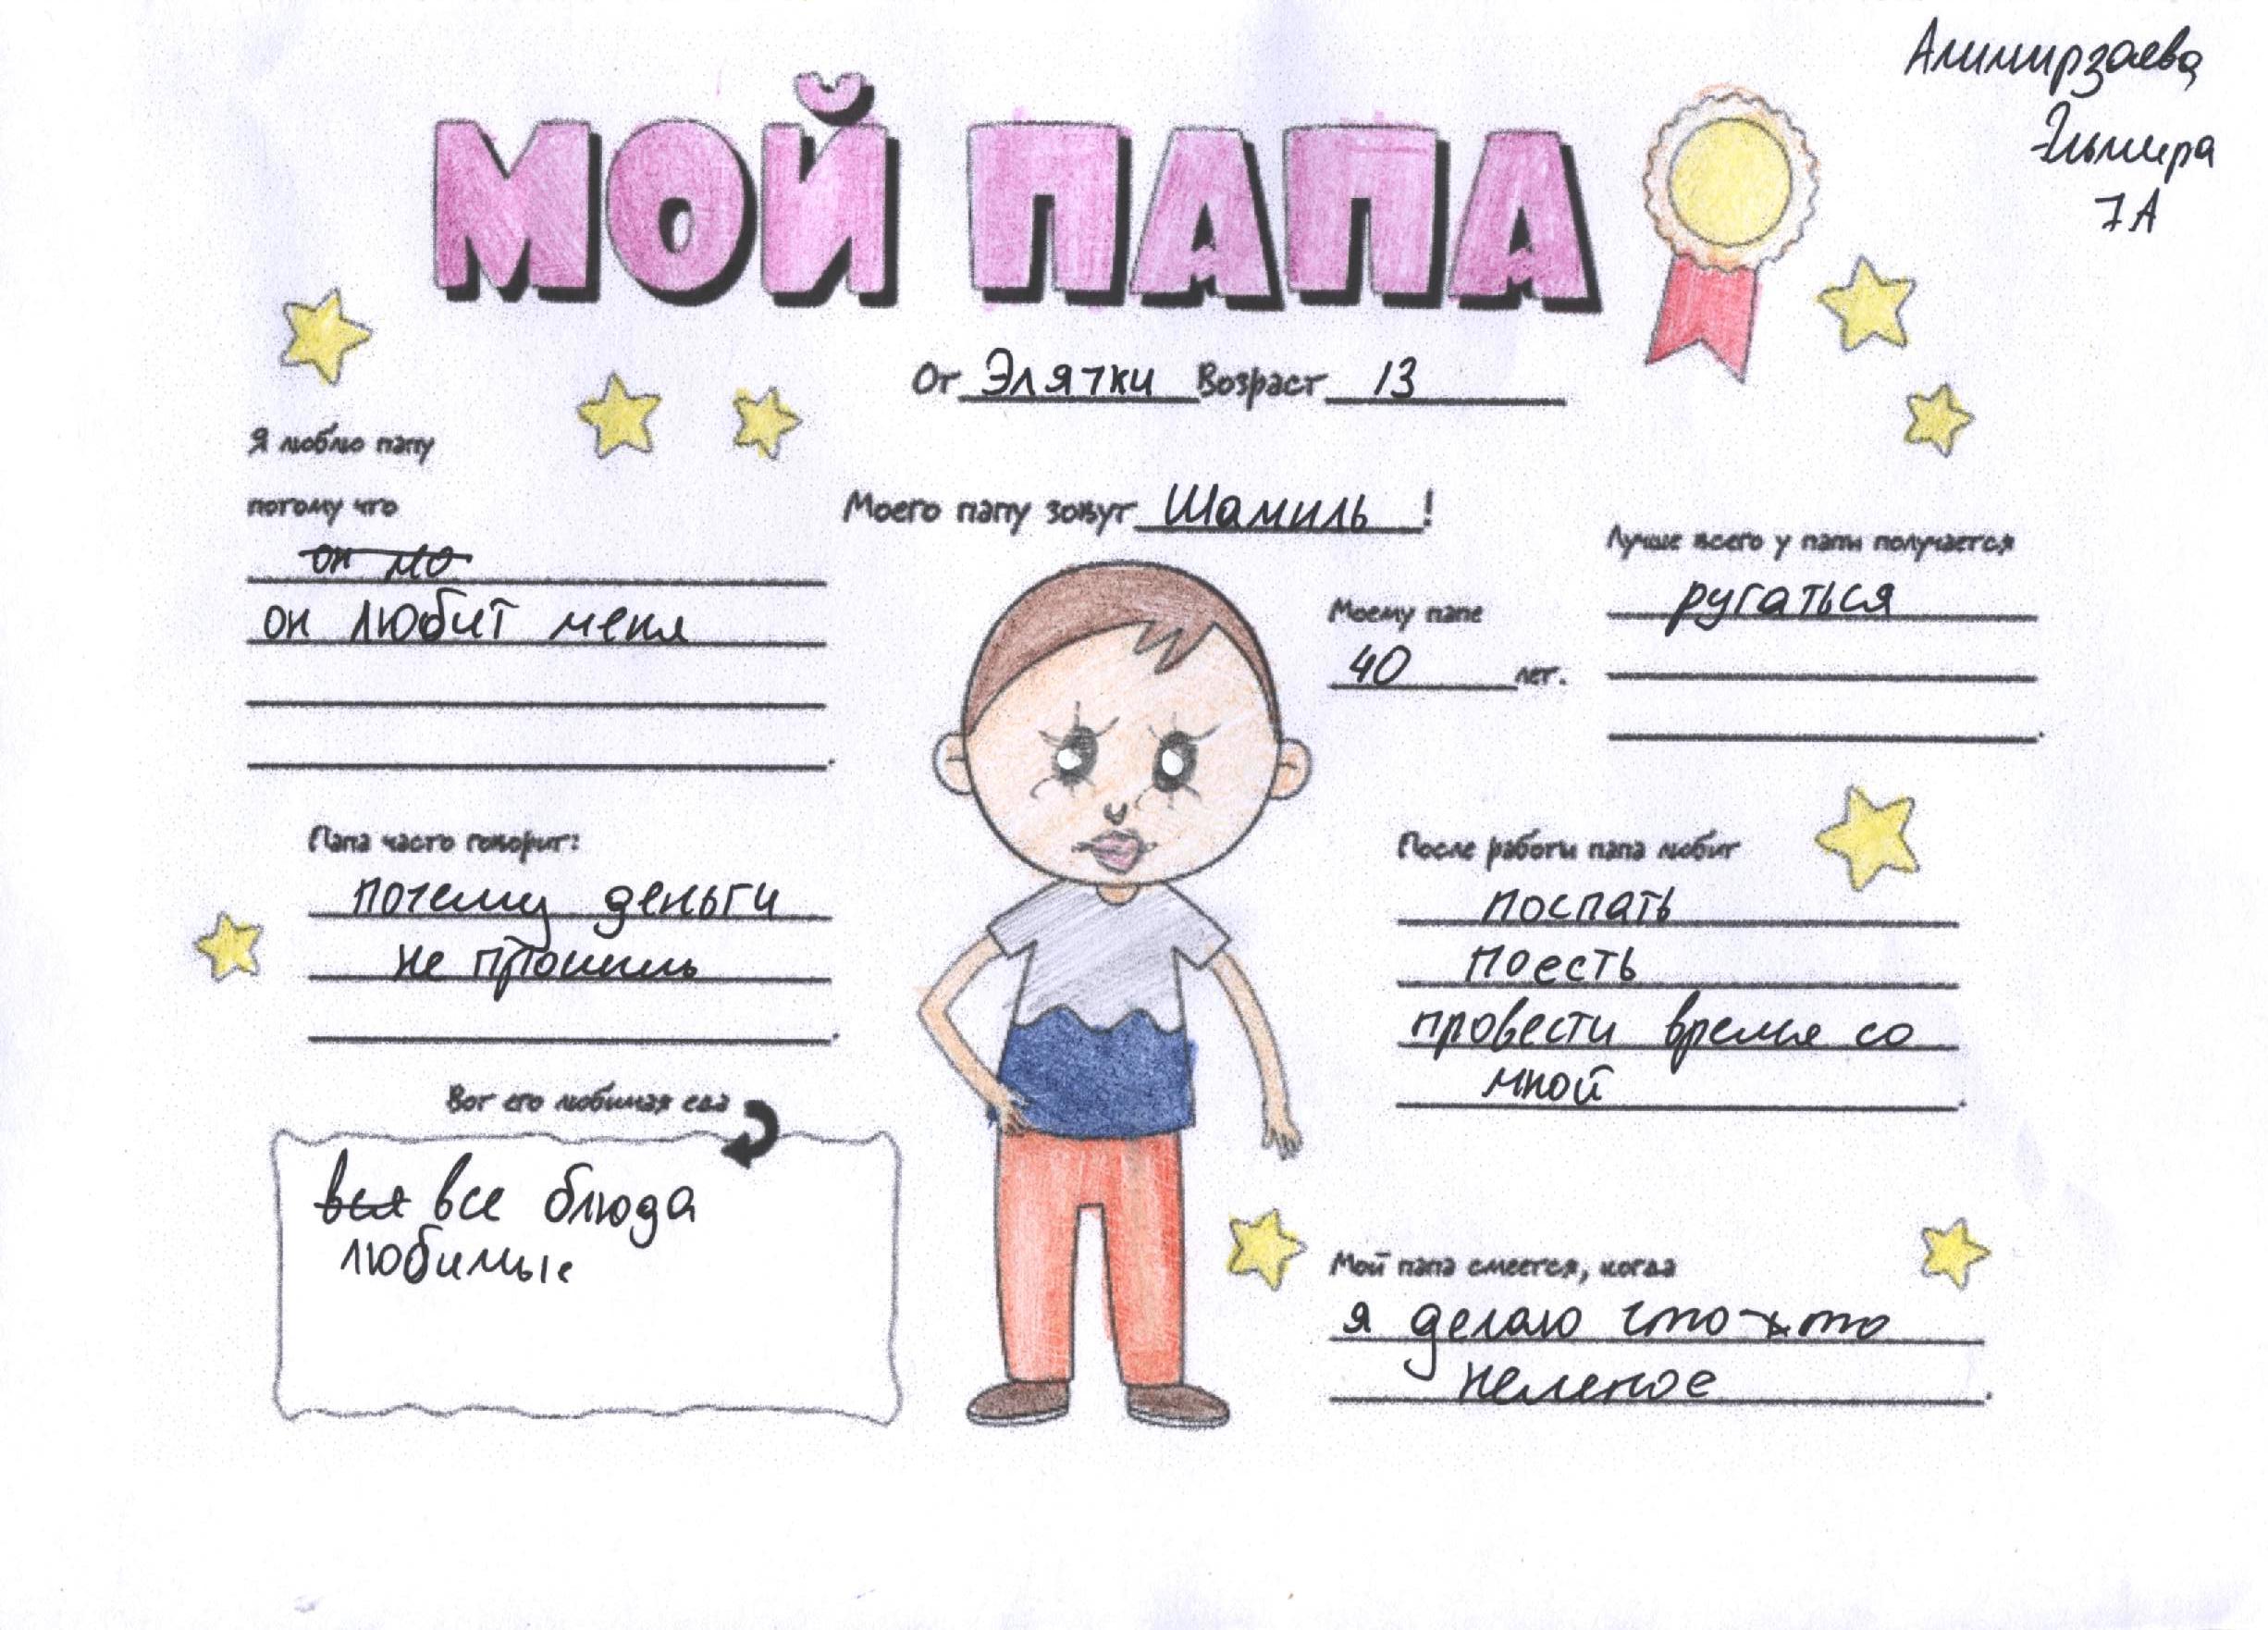 Алимирзаева
Эльмира
7А
МОЙ ПАПА
От Элятки Возраст 13
Я люблю папу
потому что
он мо
он любит меня
Моего папу зовут Шамиль!
Моему папе
40 лет.
Лучше всего у папы получается
ругаться
Папа часто говорит:
почему деньги
не просишь
После работы папа любит
поспать
поесть
провести время со
мной
Вот его любимая еда
вся все блюда
любимые
Мой папа смеется, когда
я делаю что-то
нелепое